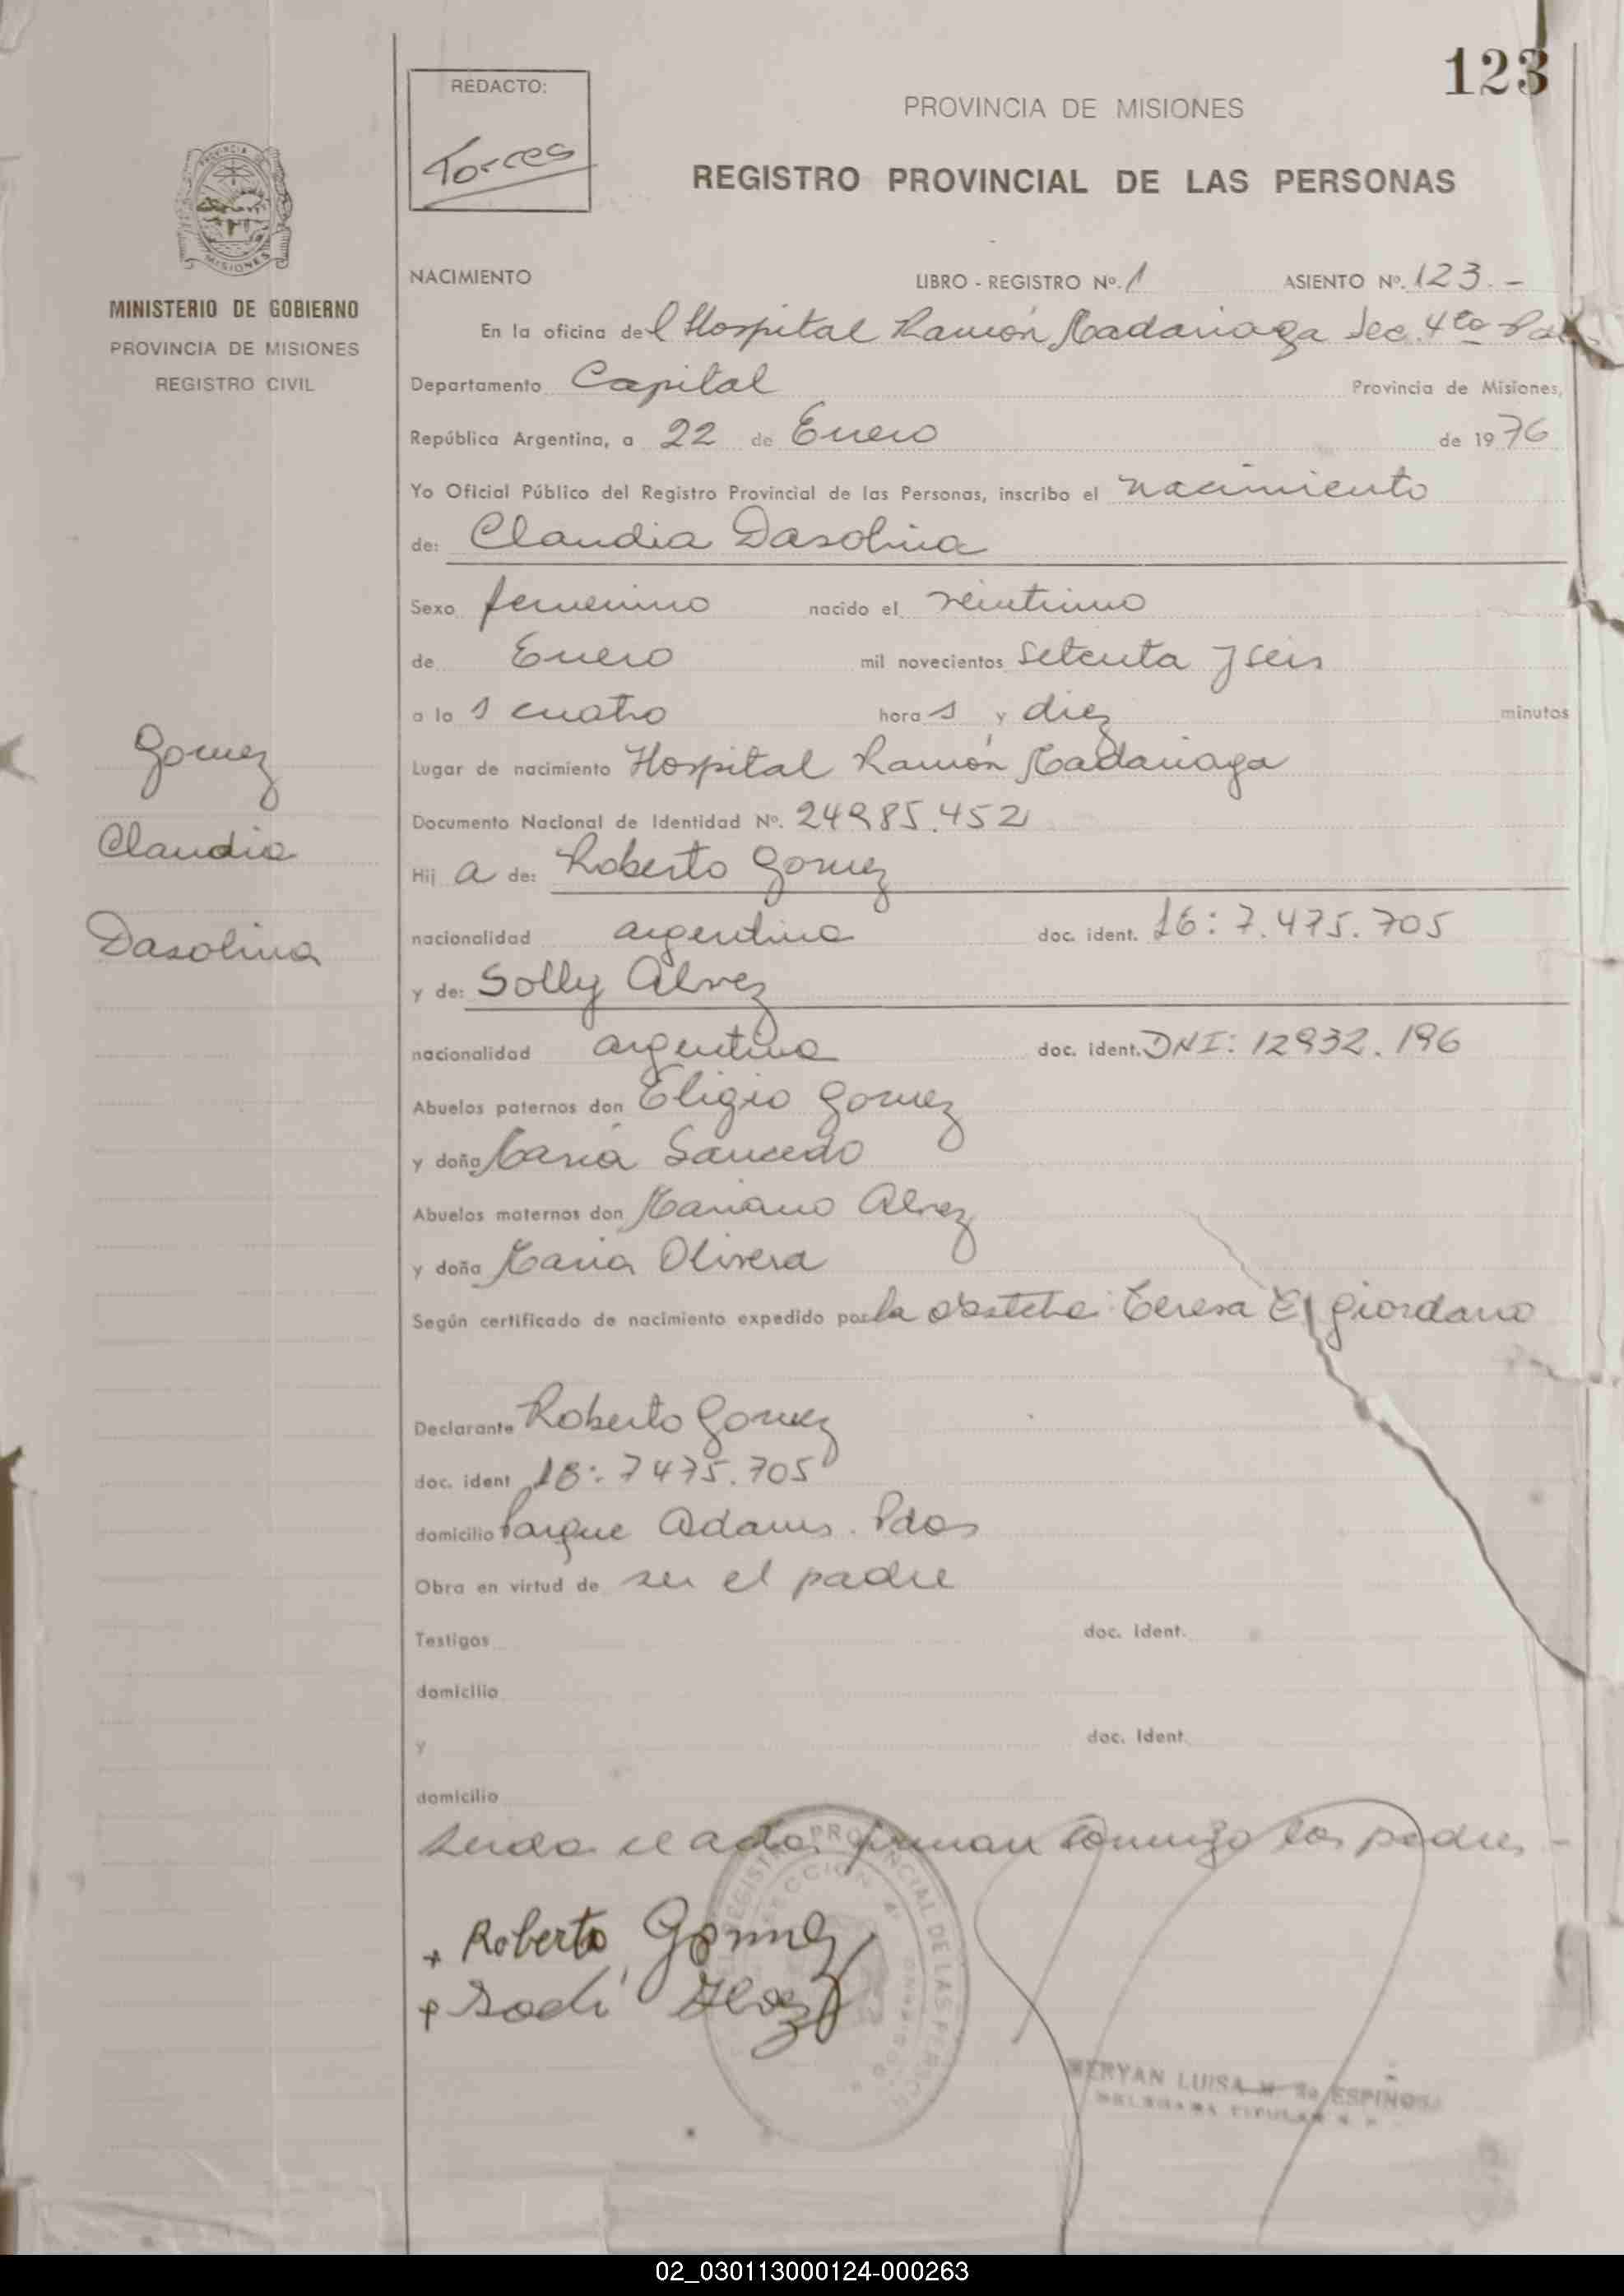 123
REDACTO:
Torres
PROVINCIA DE MISIONES
REGISTRO PROVINCIAL DE LAS PERSONAS
PROVINCIA DE
MISIONES
MINISTERIO DE GOBIERNO
PROVINCIA DE MISIONES
REGISTRO CIVIL
NACIMIENTO LIBRO - REGISTRO Nº. 1 ASIENTO Nº. 123.-
En la oficina del Hospital Ramón Madariaga Sec. 4ta
Departamento Capital Provincia de Misiones,
República Argentina, a 22 de Enero de 1976
Yo Oficial Público del Registro Provincial de las Personas, inscribo el nacimiento
de: Claudia Dasolina
Sexo femenino nacido el veintiuno
de Enero mil novecientos setenta y seis
a las cuatro horas y diez minutos
Gomez
Lugar de nacimiento Hospital Ramón Madariaga
Documento Nacional de Identidad Nº. 24985.452
Claudia
Hija de: Roberto Gomez
Dasolina
nacionalidad argentina doc. ident. 7.475.705
y de: Solly Alvez
nacionalidad argentina doc. ident. DNI: 12932.196
Abuelos paternos don Eligio Gomez
y doña Maria Saucedo
Abuelos maternos don Mariano Alvez
y doña Maria Olivera
Según certificado de nacimiento expedido por la obstetra Teresa E. Giordano
Declarante Roberto Gomez
doc. ident 7475.705
domicilio Parque Adams. Pdas
Obra en virtud de ser el padre
Testigos doc. Ident.
domicilio
y doc. Ident.
domicilio
Leida el acta, firman conmigo los padres -
REGISTRO PROVINCIAL DE LAS PERSONAS
SECCION 4ª
POSADAS
+ Roberto Gomez
MERYAN LUISA M. de ESPINOSA
02_030113000124-000263